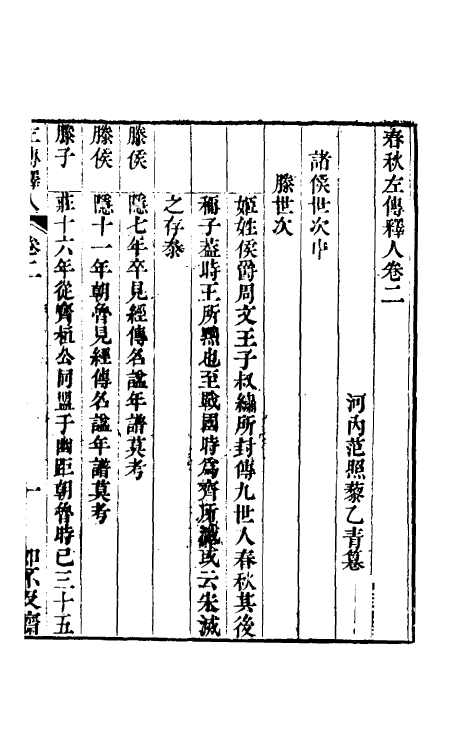 春秋左傳釋人卷二
河內范照藜乙青纂
諸侯世次中
滕世次
姬姓侯爵周文王子叔繡所封傳九世入春秋其後
稱子蓋時王所黜也至戰國時為齊所滅或云朱滅
之存叅
滕侯 隱七年卒見經傳名諡年譜莫考
滕侯 隱十一年朝魯見經傳名諡年譜莫考
滕子 莊十六年從齊桓公同盟于幽距朝魯時已三十五
左傳釋人 卷二 一 如不及齋